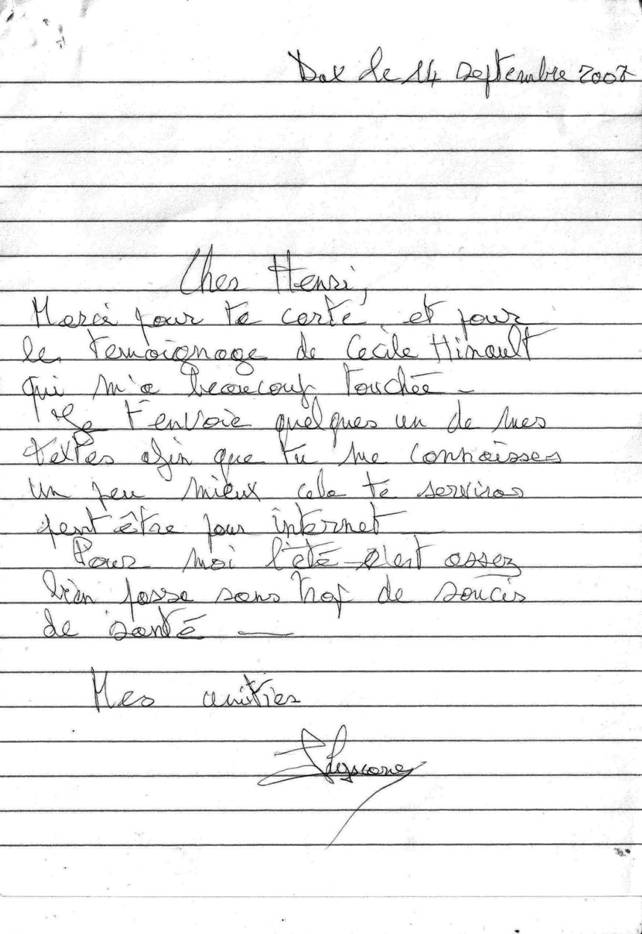 Dax le 14 septembre 2007
Cher Henri,
Merci pour ta carte et pour
le temoignage de Cecile Hinault
qui m'a beaucoup touchée -
Je t'envoie quelques un de mes
textes afin que tu me connaisses
un peu mieux cela te serviras
peut être pour internet
Pour moi l'été s'est assez
bien passe sans trop de soucis
de santé —
Mes amities